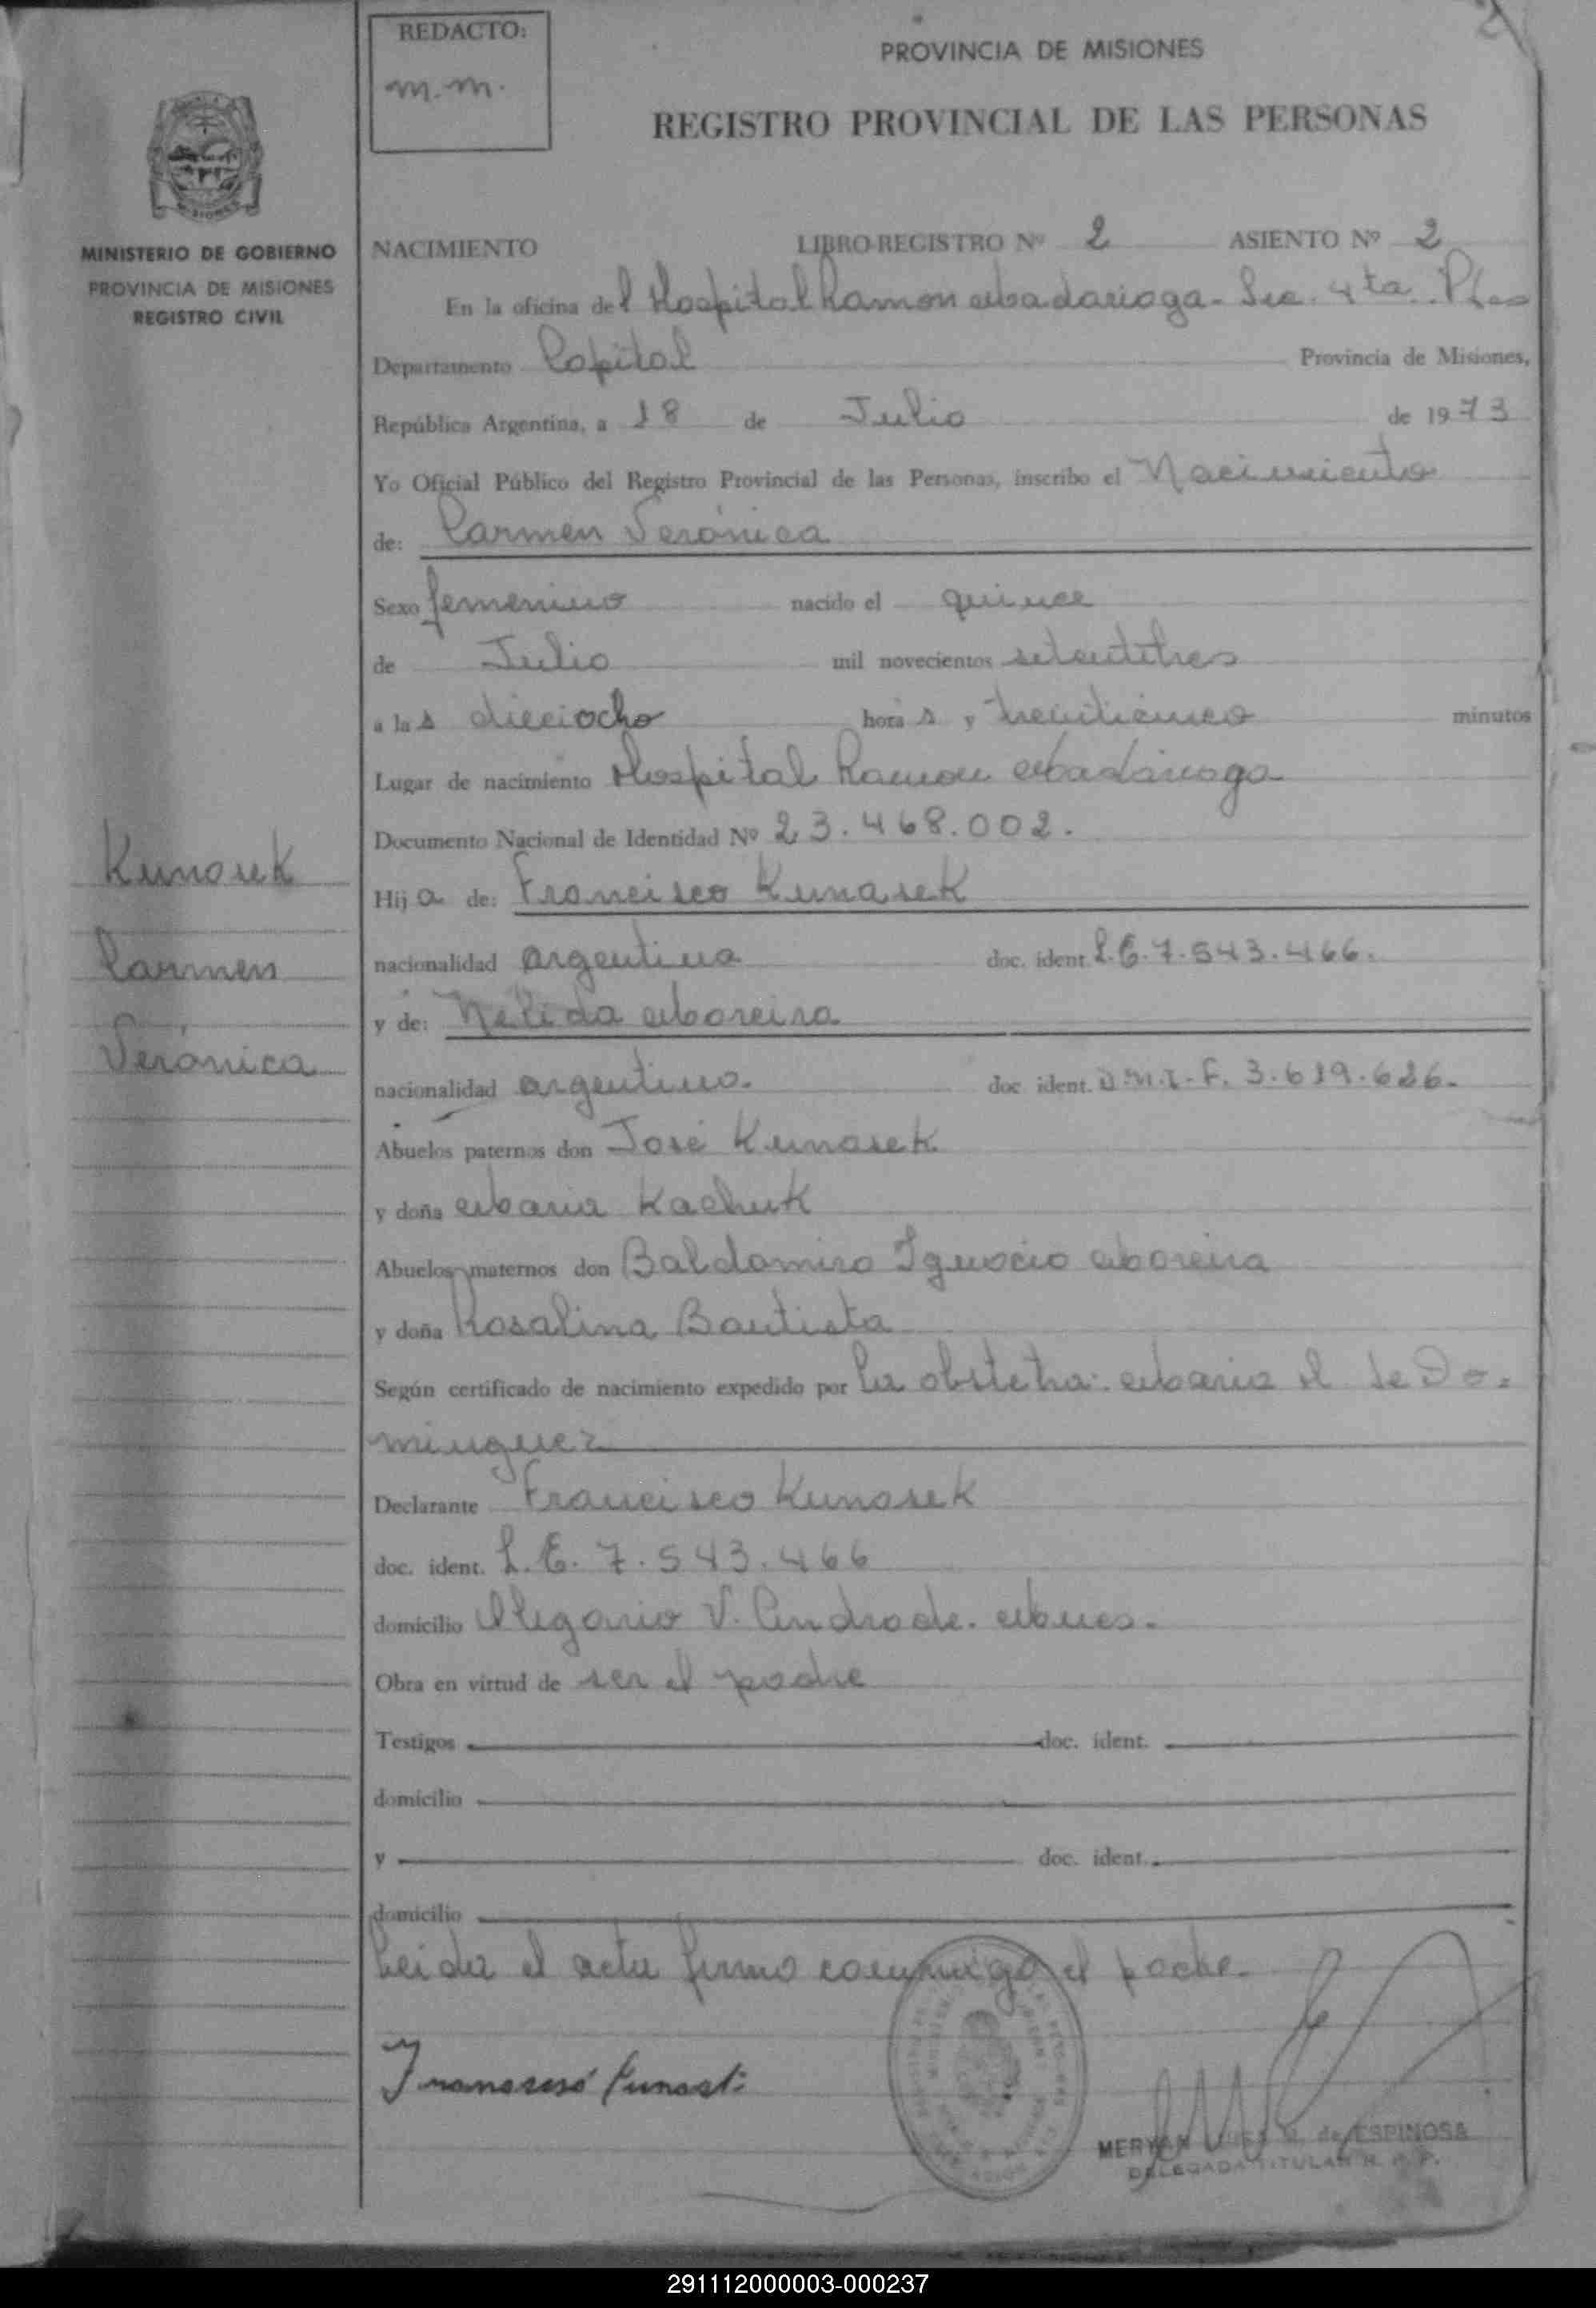 REDACTO:
m.m.
PROVINCIA DE MISIONES
REGISTRO PROVINCIAL DE LAS PERSONAS
MINISTERIO DE GOBIERNO
PROVINCIA DE MISIONES
REGISTRO CIVIL
NACIMIENTO LIBRO-REGISTRO Nº 2 ASIENTO Nº 2
En la oficina del Hospital Ramon Madariaga - Sec. 4ta. Pdas
Departamento Capital Provincia de Misiones,
República Argentina, a 18 de Julio de 1973
Yo Oficial Público del Registro Provincial de las Personas, inscribo el Nacimiento
de: Carmen Verónica
Sexo femenino nacido el quince
de Julio mil novecientos setentitres
a las dieciocho horas y treinticinco minutos
Lugar de nacimiento Hospital Ramon Madariaga
Documento Nacional de Identidad Nº 23.468.002.
Kunasek
Carmen
Verónica
Hija de: Francisco Kunasek
nacionalidad argentina doc. ident. L.E. 7.543.466.
y de: Nelida Moreira
nacionalidad argentina. doc. ident. D.N.I.F. 3.619.626.
Abuelos paternos don José Kunasek
y doña Maria Kachuk
Abuelos maternos don Baldomiro Ignacio Moreira
y doña Rosalina Bautista
Según certificado de nacimiento expedido por la obstetra: Maria E de Do-
minguez
Declarante Francisco Kunasek
doc. ident. L.E. 7.543.466
domicilio Olegario V. Andrade. Mnes.
Obra en virtud de ser el padre
Testigos doc. ident.
domicilio
y doc. ident.
domicilio
Leida el acta firmo conmigo el padre.
MERYAN de ESPINOSA
DELEGADA TITULAR R. P. P.
291112000003-000237